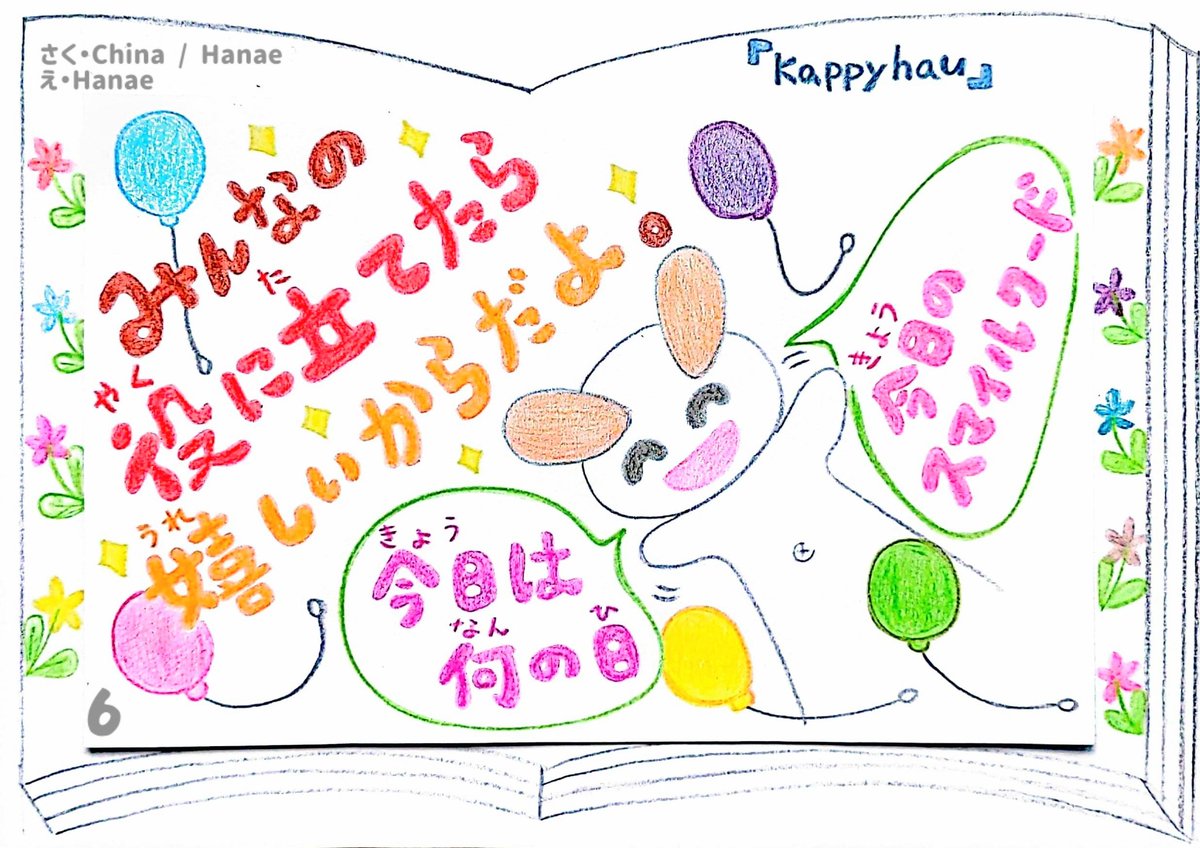 さく・China / Hanae
え・Hanae
『Kappyhau』
みんなの
役に立てたら
やく
だ
嬉しいからだよ。
うれ
きょう
今日の
スマイルワード
きょう
今日は
なん
ひ
何の日
6